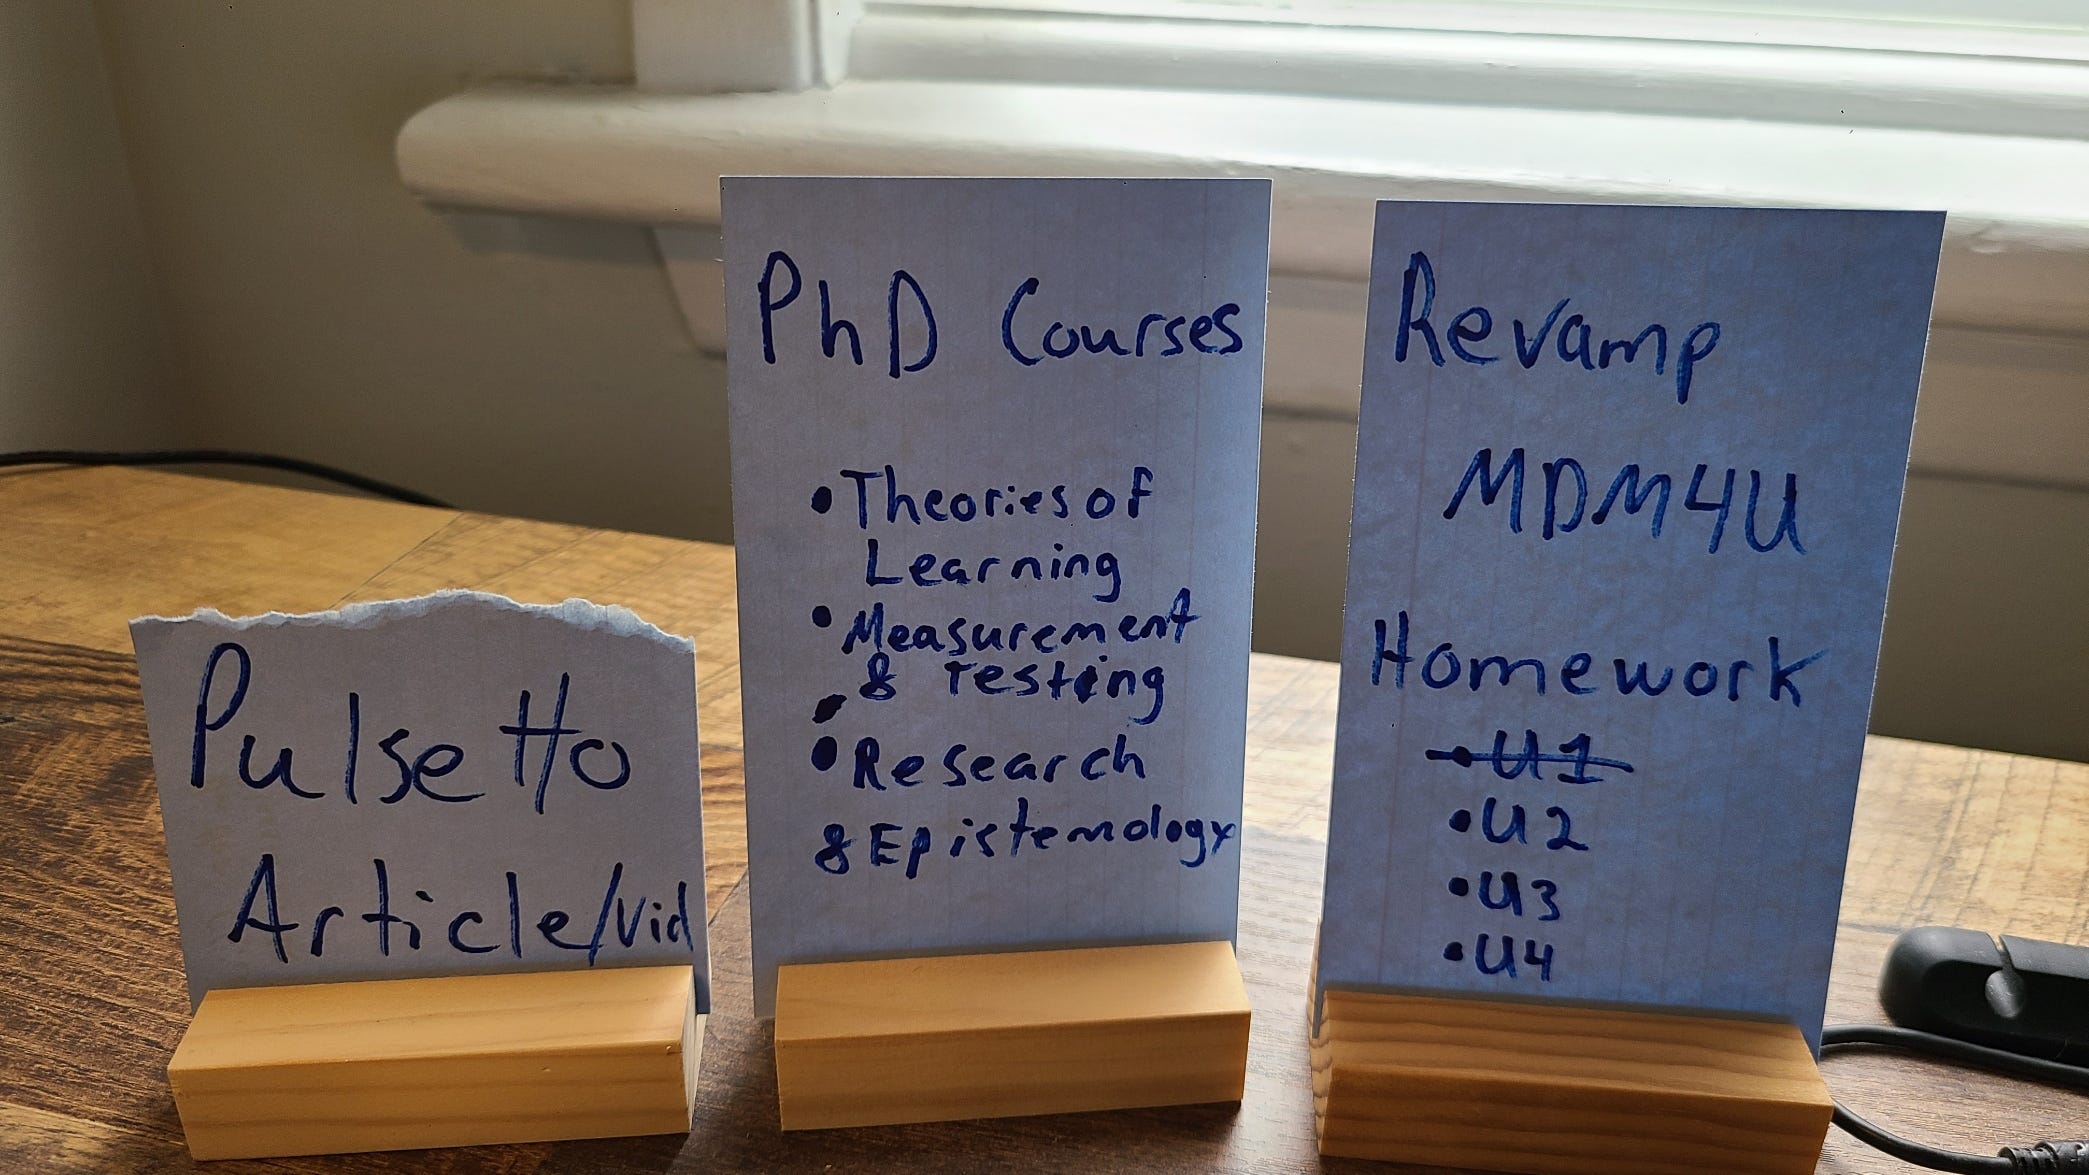 Pulsetto
Article/vid
PhD Courses
• Theories of
Learning
• Measurement
& Testing
•
• Research
& Epistemology
Revamp
MDM4U
Homework
• U1
• U2
• U3
• U4